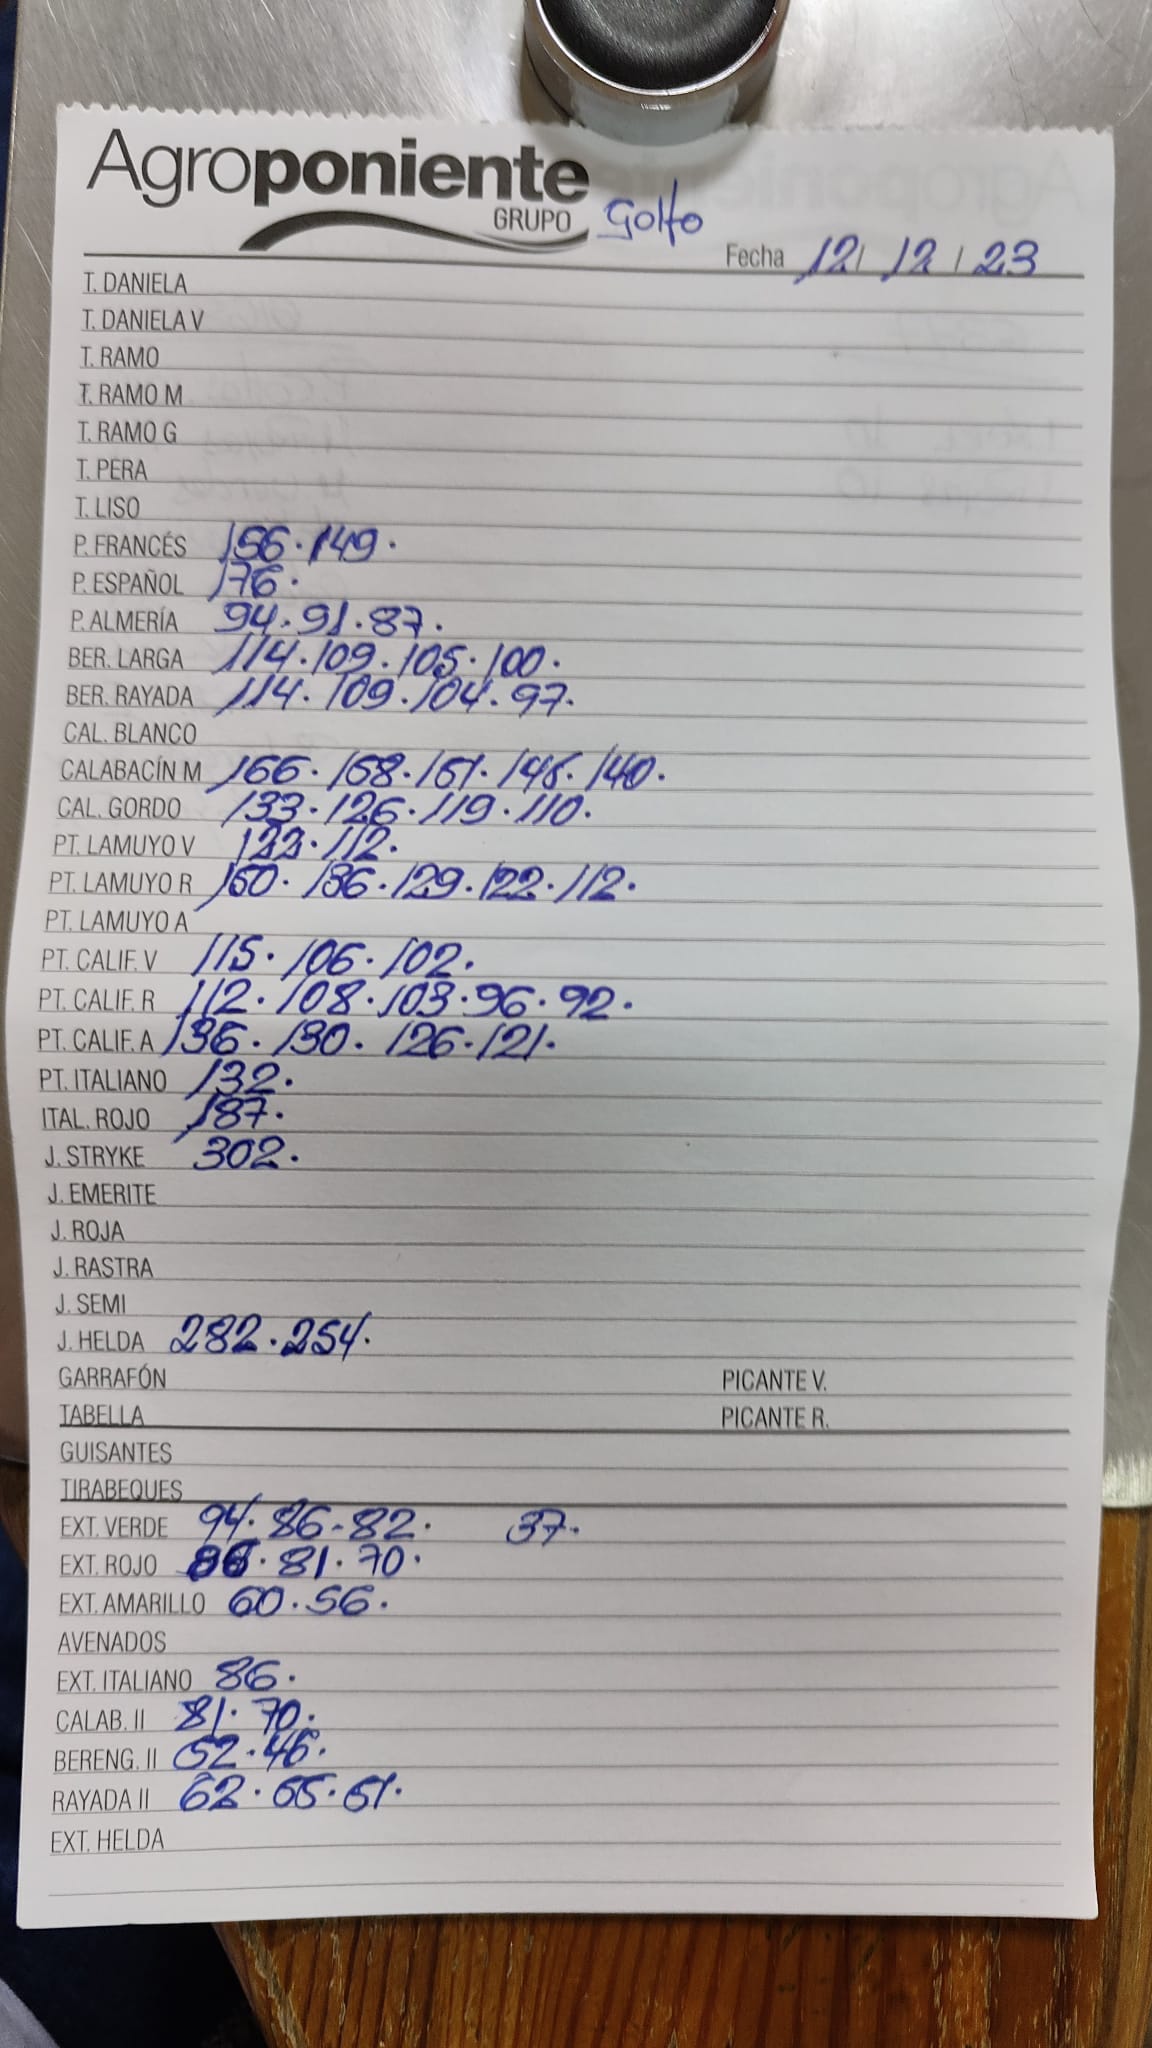 Agroponiente
GRUPO Golfo
Fecha 12 / 12 / 23
T. DANIELA
T. DANIELA V
T. RAMO
T. RAMO M
T. RAMO G
T. PERA
T. LISO
P. FRANCÉS 156. 149.
P. ESPAÑOL 176.
P. ALMERÍA 94. 91. 87.
BER. LARGA 114. 109. 105. 100.
BER. RAYADA 114. 109. 104. 97.
CAL. BLANCO
CALABACÍN M 140.
CAL. GORDO 133. 126. 119. 110.
PT. LAMUYO V 122. 112.
PT. LAMUYO R 136. 129. 122. 112.
PT. LAMUYO A
PT. CALIF. V 115. 106. 102.
PT. CALIF. R 112. 108. 103. 96. 92.
PT. CALIF. A 136. 130. 126. 121.
PT. ITALIANO 132.
ITAL. ROJO 187.
J. STRYKE 302.
J. EMERITE
J. ROJA
J. RASTRA
J. SEMI
J. HELDA 282. 254.
GARRAFÓN PICANTE V.
TABELLA PICANTE R.
GUISANTES
TIRABEQUES
EXT. VERDE 94. 86. 82. 37.
EXT. ROJO 86. 81. 70.
EXT. AMARILLO 60. 56.
AVENADOS
EXT. ITALIANO 86.
CALAB. II 81. 70.
BERENG. II 52. 46.
RAYADA II 62.
EXT. HELDA